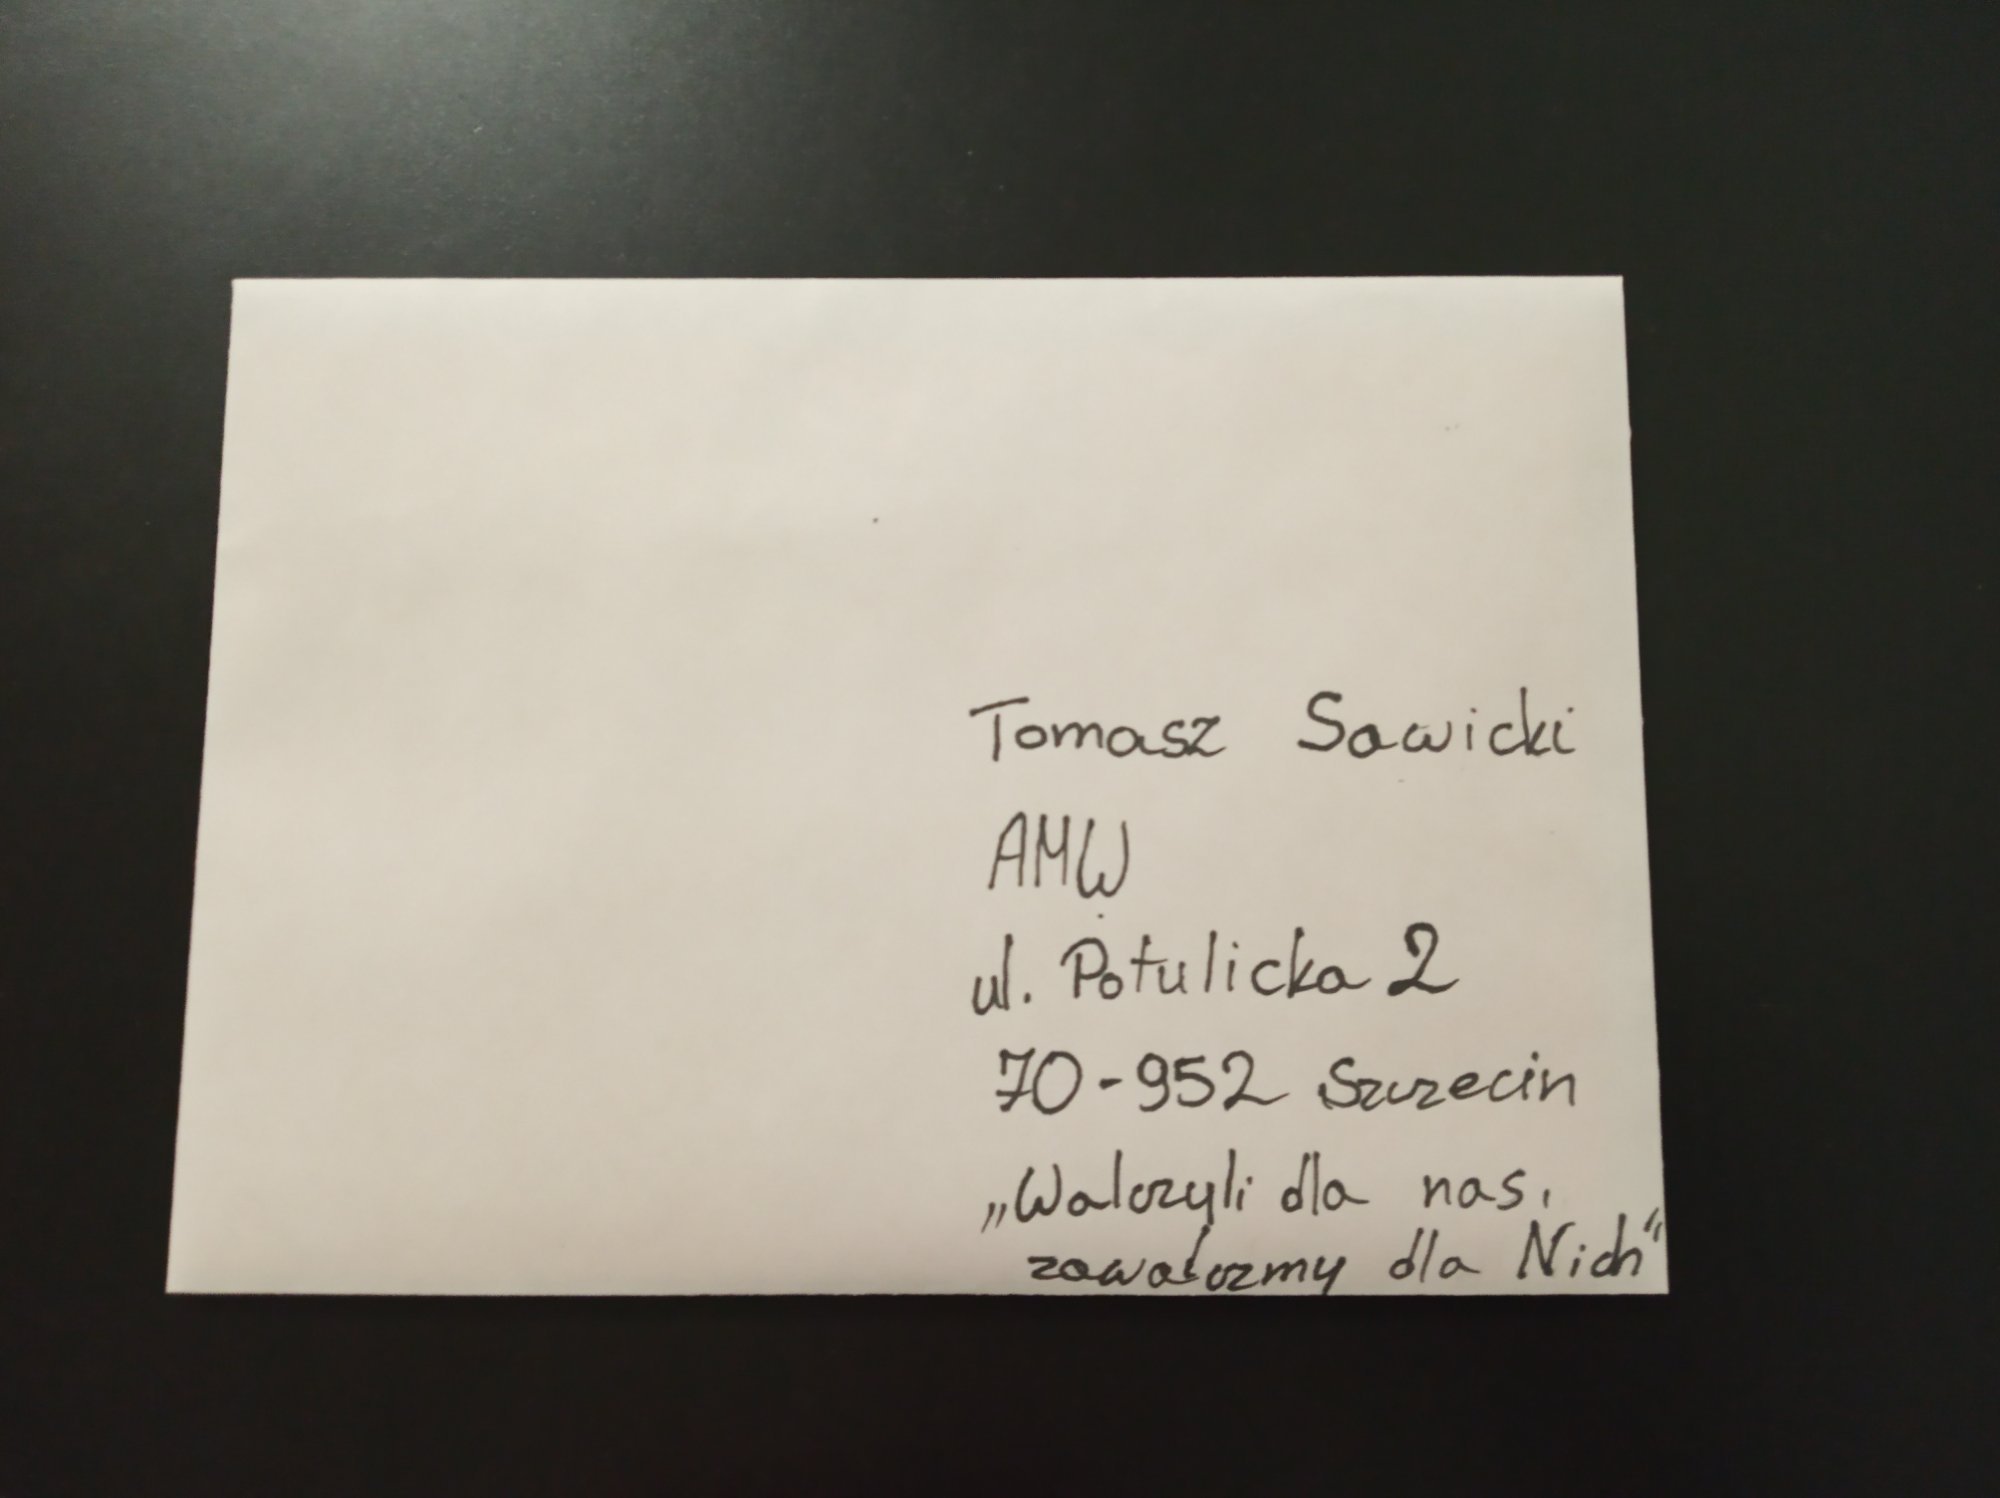 Tomasz Sawicki
AMW
ul. Potulicka 2
70-952 Szczecin
„Walczyli dla nas,
zawalczmy dla Nich"